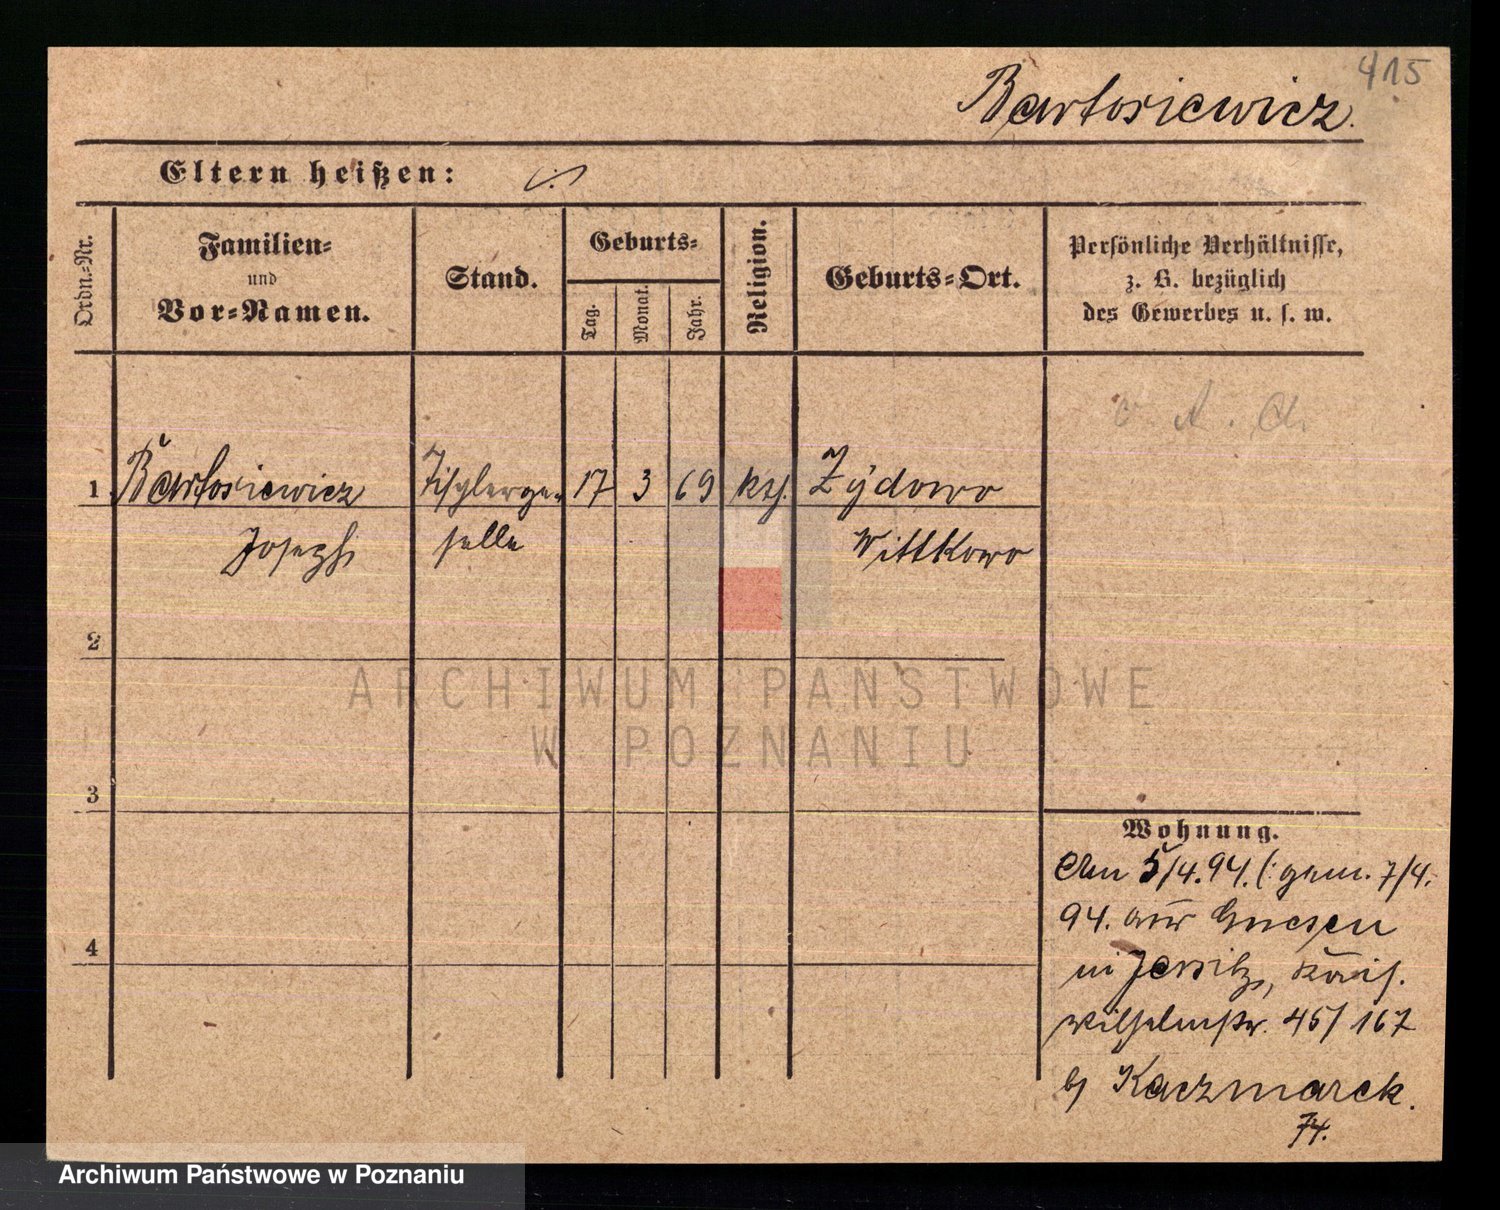 415
Bartosiewicz.
Eltern heißen:
Ordn.-Nr.
Familien-
und
Vor-Namen.
Stand.
Geburts-
Tag.
Monat.
Jahr.
Religion.
Geburts-Ort.
Persönliche Verhältnisse,
z. B. bezüglich
des Gewerbes u. s. w.
1 Bartosiewicz Tischlerge- 17 3 69 kth. Żydowo
Joseph selle Wittkowo
2
ARCHIWUM PAŃSTWOWE
W POZNANIU
3
Wohnung.
Am 5/4.94. (: gem. 7/4.
94. aus Gnesen
in Jersitz, Kais.
Wilhelmstr. 45/167
b/ Kaczmarek.
74.
4
Archiwum Państwowe w Poznaniu